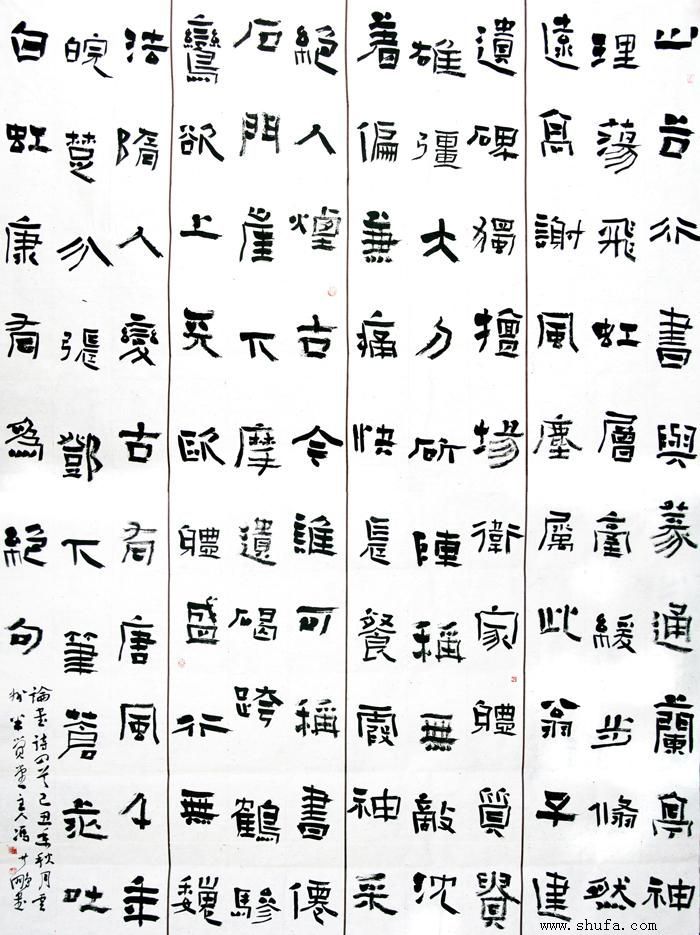 山谷行書與篆通蘭亭神
理蕩飛虹層臺緩步翛然
遠高謝風塵屬此翁子建
遺碑獨擅場衛家體質
雄彊大刀斫陣稱無敵沈
着偏兼痛快長餐霞神采
絕人煙古今誰可稱書僊
石門崖下摩遺碣跨鶴驂
鸞欲上天歐體盛行無魏
法隋人變古有唐風千年
皖楚分張鄧下筆蒼茫吐
白虹康有為絕句
論書詩四首己丑年秋月
主人馮
www.shufa.com